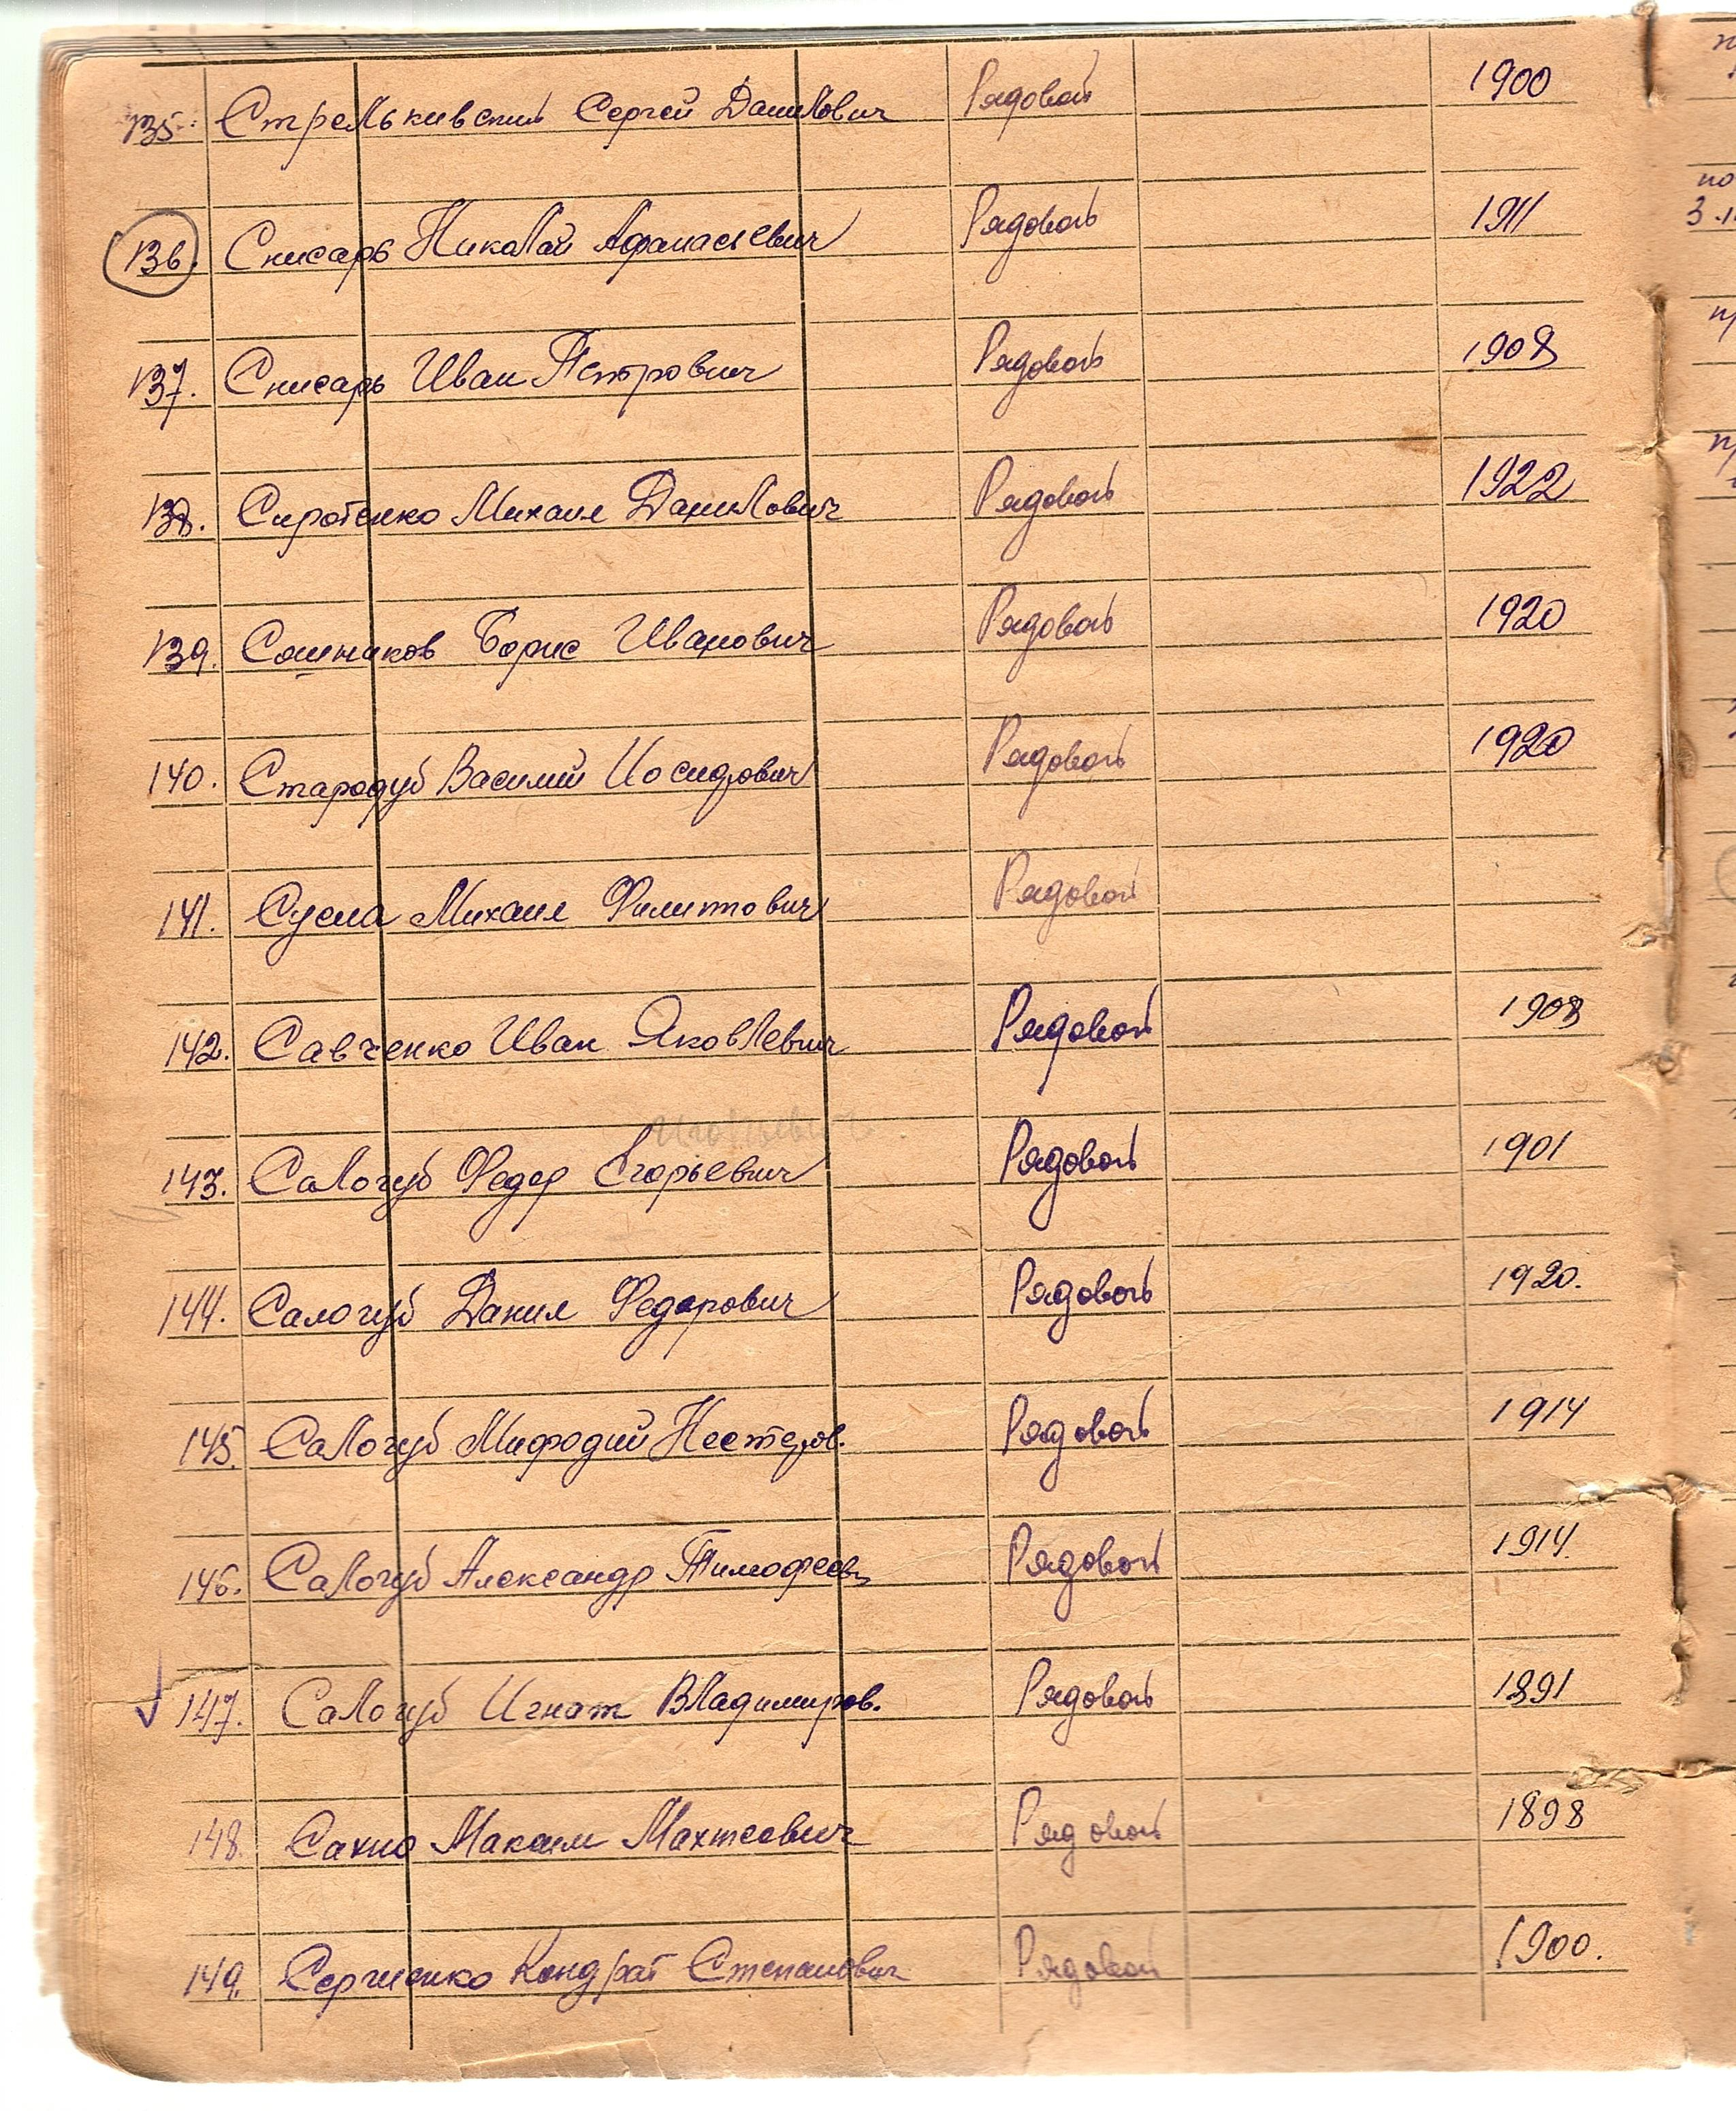 135. Стрелькивский Сергей Данилович Рядовой 1900
136. Снисарь Николай Афанасьевич Рядовой 1911
137. Снисарь Иван Петрович Рядовой 1908
138. Сиротенко Михаил Данилович Рядовой 1922
139. Сошников Борис Иванович Рядовой 1920
140. Стародуб Василий Иосифович Рядовой 1920
141. Сусла Михаил Филиппович Рядовой
142. Савченко Иван Яковлевич Рядовой 1908
143. Салогуб Федер Егорьевич Рядовой 1901
144. Салогуб Данил Федорович Рядовой 1920.
145. Салогуб Мифодий Нестеров. Рядовой 1914
146. Салогуб Александр Тимофеев Рядовой 1914.
147. Салогуб Игнат Владимиров. Рядовой 1891
148. Сахно Максим Махтеевич Рядовой 1898
149. Сергиенко Кондрат Степанович Рядовой 1900.